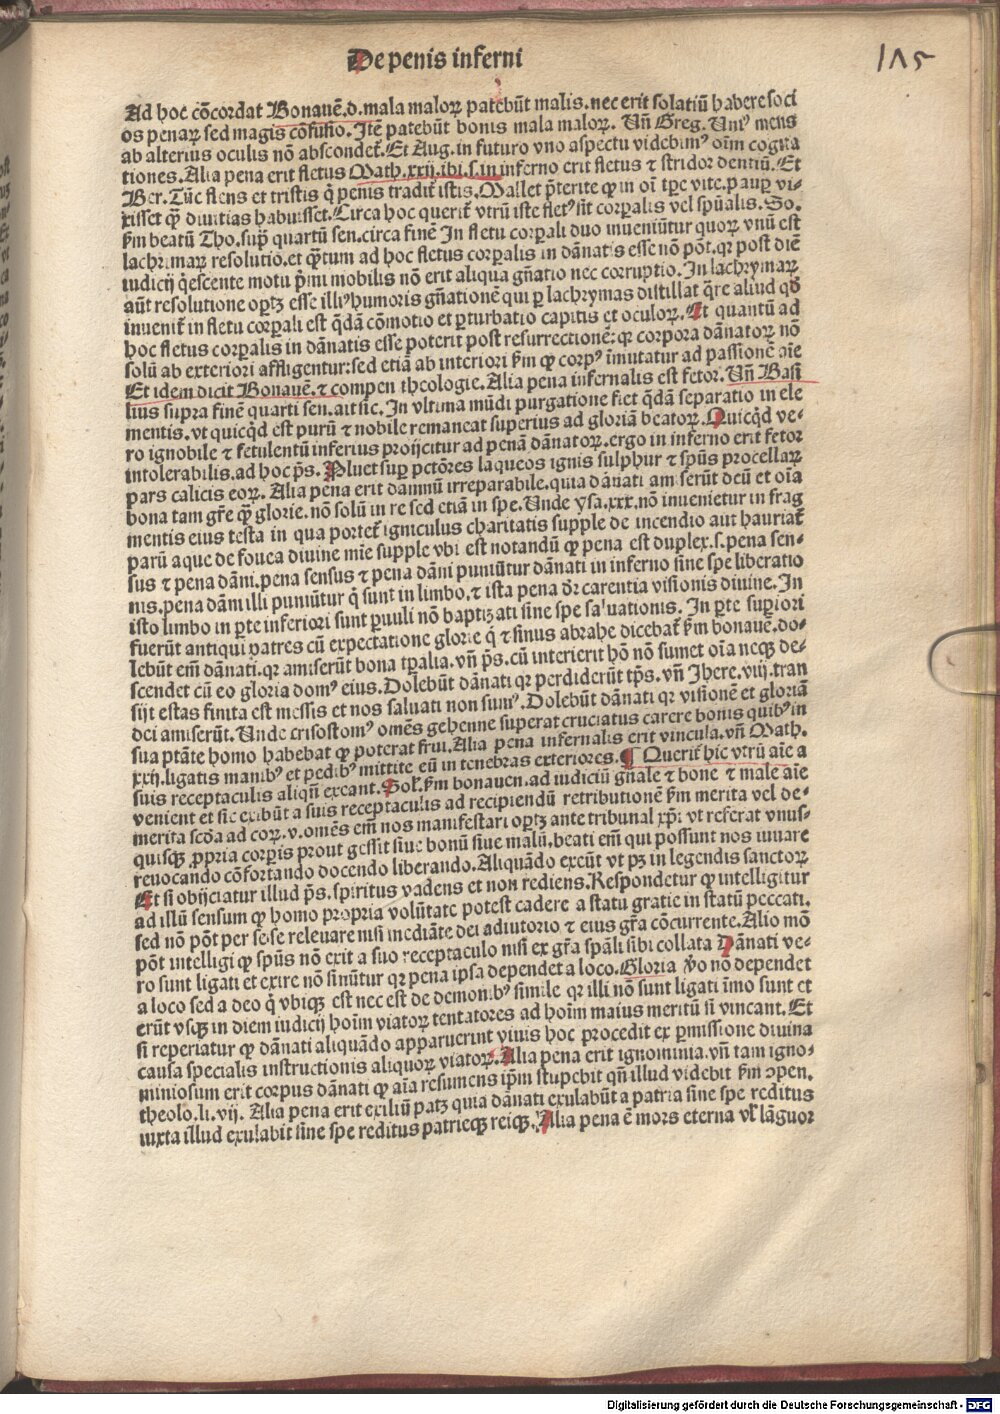 De penis inferni
115
Ad hoc cōcordat Bonauē.d.mala maloꝝ patebūt malis.nec erit solatiū habere soci
os penaꝝ sed magis cōfusio.Itē patebūt bonis mala maloꝝ.Vñ Greg.Vniꝰ mens
ab alterius oculis nō abscondet̃.Et Aug.in futuro vno aspectu videbimꝰ oīm cogita
tiones.Alia pena erit fletus Math.xxij.ibi.s.in inferno erit fletus ⁊ stridor dentiū.Et
Ber.Tūc flens et tristis q̇ penis tradit̃ istis.Mallet p̄terite ꝙ in oī tp̄e vite.pauꝑ vi-
xisset q̄ꝫ diuitias habuisset.Circa hoc querit̃ vtrū iste fletꝰ sit corꝑalis vel spūalis.So.
ẜm beatū Tho.suꝑ quartū sen.circa finē In fletu corꝑali duo inueniūtur quoꝝ vnū est
lachrimaꝝ resolutio.et q̄ꝫtum ad hoc fletus corꝑalis in dānatis esse nō pōt.qꝛ post diē
iudicij q̇escente motu p̄mi mobilis nō erit aliqua gñatio nec corruptio.In lachrymaꝝ
aūt resolutione oportꝫ esse illiꝰ humoris gñationē qui ꝑ lachrymas distillat q̄re aliud qḋ
inuenit̃ in fletu corꝑali est q̄dā cōmotio et ꝑturbatio capitis et oculoꝝ.Et quantū ad
hoc fletus corꝑalis in dānatis esse poterit post resurrectionē:qꝛ corpora dānatoꝝ nō
solū ab exteriori affligentur:sed etiā ab interiori ẜm ꝙ corpꝰ īmutatur ad passionē aīe
Et idem dicit Bonauē.⁊ compen theologie.Alia pena infernalis est fetor.Vñ Basi
lius supra finē quarti sen.ait sic.In vltima mūdi purgatione fiet q̄dā separatio in ele
mentis.vt quicq̇d est purū ⁊ nobile remaneat superius ad gloriā beatoꝝ.Quicq̇d ve-
ro ignobile ⁊ fetulentū inferius proijcitur ad penā dānatoꝝ.ergo in inferno erit fetor
intolerabilis.ad hoc p̄s.Pluet suꝑ pctōres laqueos ignis sulphur ⁊ spūs procellaꝝ
pars calicis eoꝝ.Alia pena erit damnū irreparabile.quia dānati amiserūt deū et oīa
bona tam gr̄e q̄ꝫ glorie.nō solū in re sed etiā in spe.Vnde ysa.xxx.nō inuenietur in frag
mentis eius testa in qua portet̃ igniculus charitatis supple de incendio aut hauriat̃
parū aque de fouea diuine mīe supple vbi est notandū ꝙ pena est duplex.s.pena sen-
sus ⁊ pena dāni.pena sensus ⁊ pena dāni puniūtur dānati in inferno sine spe liberatio
nis.pena dāni illi puniūtur q̇ sunt in limbo.⁊ ista pena dr̄ carentia visionis diuine.In
isto limbo in ꝑte inferiori sunt ꝑuuli nō baptizati sine spe saluationis.In ꝑte suꝑiori
fuerūt antiqui patres cū expectatione glorie q̇ ⁊ sinus abrahe dicebat̃ ẜm bonauē.do-
lebūt em̄ dānati.qꝛ amiserūt bona tꝑalia.vñ p̄s.cū interierit hō nō sumet oīa neqꝫ de-
scendet cū eo gloria domꝰ eius.Dolebūt dānati qꝛ perdiderūt tp̄s.vñ Jhere.viij.tran
sijt estas finita est messis et nos saluati non sumꝰ.Dolebūt dānati qꝛ visionē et gloriā
dei amiserūt.Vnde crisostomꝰ omēs gehenne superat cruciatus carere bonis quibꝰ in
sua ptāte homo habebat ꝙ poterat frui.Alia pena infernalis erit vincula.vñ Math.
xxij.ligatis manibꝰ et pedibꝰ mittite eū in tenebras exteriores.¶ Querit̃ hic vtrū aīe a
suis receptaculis aliqn̄ exeant.Sol.ẜm bonauen.ad iudiciū gñale ⁊ bone ⁊ male aīe
venient et sic exibūt a suis receptaculis ad recipiendū retributionē ẜm merita vel de-
merita scḋa ad coꝝ.v.omēs em̄ nos manifestari oportꝫ ante tribunal xp̄i vt referat vnus-
quisqꝫ ꝓpria corꝑis prout gessit siue bonū siue malū.beati em̄ qui possunt nos iuuare
reuocando cōfortando docendo liberando.Aliquādo exeūt vt pꝫ in legendis sanctoꝝ
Et si obijciatur illud p̄s.spiritus vadens et non rediens.Respondetur ꝙ intelligitur
ad illū sensum ꝙ homo propria volūtate potest cadere a statu gratie in statū peccati.
sed nō pōt per sese releuare nisi mediāte dei adiutorio ⁊ eius gr̄a cōcurrente.Alio mō
pōt intelligi ꝙ spūs nō exit a suo receptaculo nisi ex gr̄a spāli sibi collata Dānati ve-
ro sunt ligati et exire nō sinūtur qꝛ pena ipsa dependet a loco.Gloria v̊o nō dependet
a loco sed a deo q̇ vbiqꝫ est nec est de demonibꝰ simile qꝛ illi nō sunt ligati īmo sunt et
erūt vsqꝫ in diem iudicij hoīm viatoꝝ tentatores ad hoīm maius meritū si vincant.Et
si reperiatur ꝙ dānati aliquādo apparuerint viuis hoc procedit ex ꝑmissione diuina
causa specialis instructionis aliquoꝝ viatoꝝ.Alia pena erit ignominia.vñ tam igno-
miniosum erit corpus dānati ꝙ aīa resumens ip̄m stupebit qn̄ illud videbit ẜm ꝯpen.
theolo.li.vij. Alia pena erit exiliū patꝫ quia dānati exulabūt a patria sine spe reditus
iuxta illud exulabit sine spe reditus patrieqꝫ reiqꝫ.Alia pena ē mors eterna vl̕ lāguor
Digitalisierung gefördert durch die Deutsche Forschungsgemeinschaft - DFG